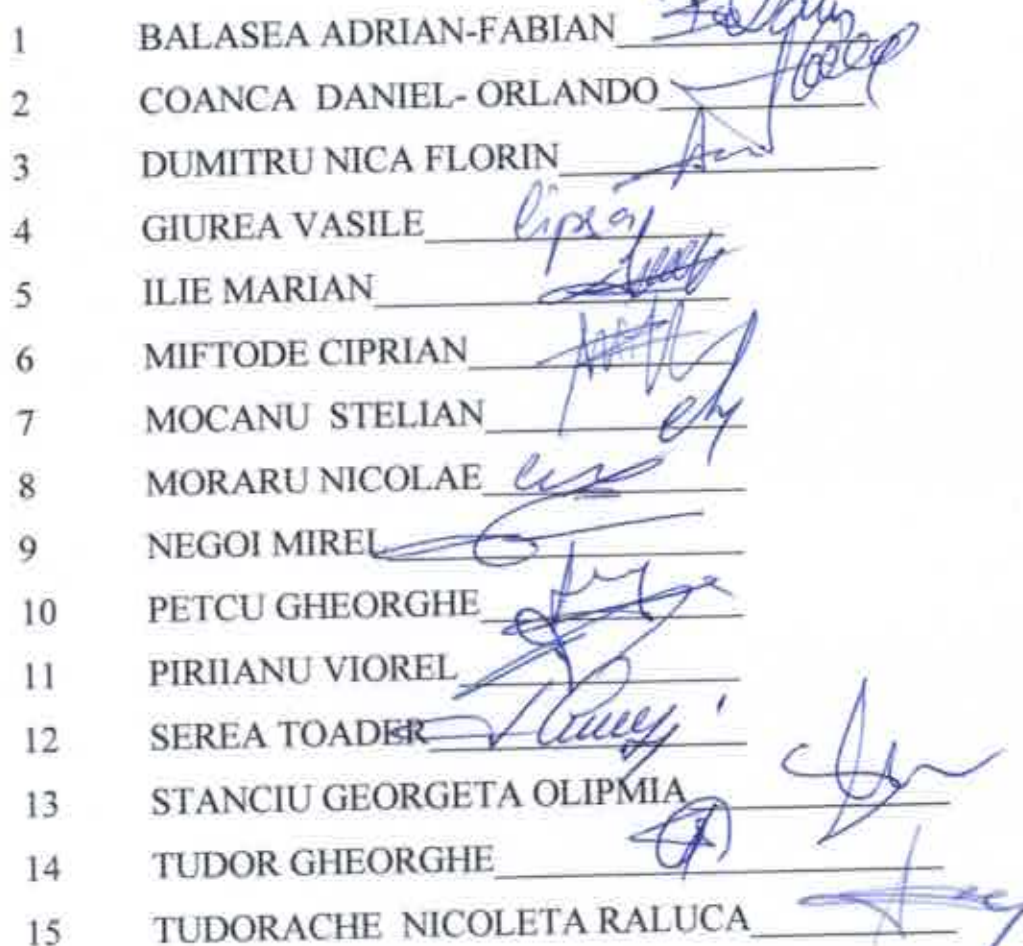 1 BALASEA ADRIAN-FABIAN
2 COANCA DANIEL- ORLANDO
3 DUMITRU NICA FLORIN
4 GIUREA VASILE lipsă
5 ILIE MARIAN
6 MIFTODE CIPRIAN
7 MOCANU STELIAN
8 MORARU NICOLAE
9 NEGOI MIREL
10 PETCU GHEORGHE
11 PIRIIANU VIOREL
12 SEREA TOADER
13 STANCIU GEORGETA OLIPMIA
14 TUDOR GHEORGHE
15 TUDORACHE NICOLETA RALUCA